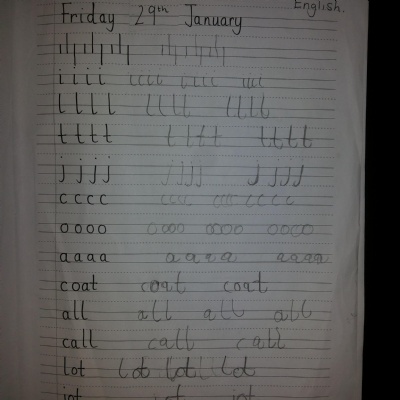 English.
Friday 29th January
i i i i i i i i i i i i i i i i
l l l l l l l l l l l l
t t t t t t t t t t t t
j j j j j j j j j j j j
c c c c c c c c c c c c c c c
o o o o o o o o o o o o o o o o
a a a a a a a a a a a a
coat coat coat
all all all all
call call call
lot lot lot lot